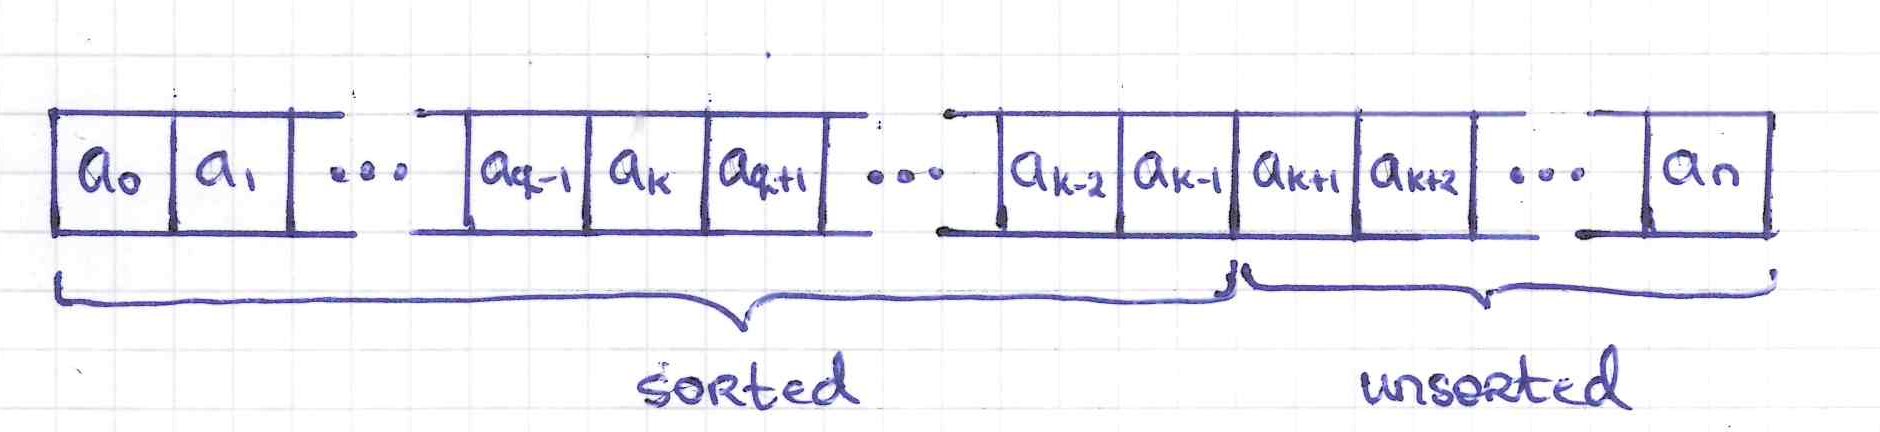 a₀ a₁ ... a_q-1 a_k a_q+1 ... a_k-2 a_k-1 a_k+1 a_k+2 ... a_n
sorted unsorted